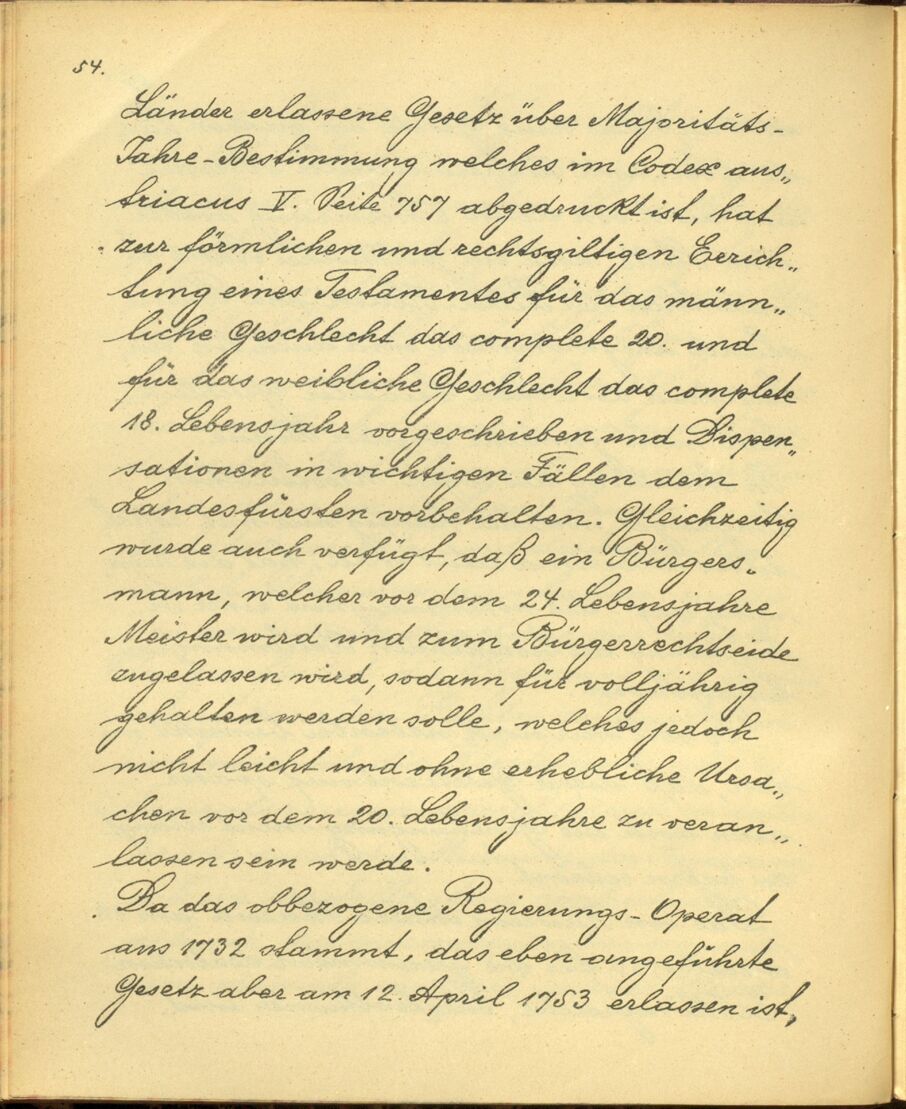 54.
Länder erlassene Gesetz über Majoritäts-
Jahre-Bestimmung welches im Codex aus„
triacus V. Seite 757 abgedruckt ist, hat
zur förmlichen und rechtsgiltigen Errich„
tung eines Testamentes für das männ„
liche Geschlecht das complete 20. und
für das weibliche Geschlecht das complete
18. Lebensjahr vorgeschrieben und Dispen„
sationen in wichtigen Fällen dem
Landesfürsten vorbehalten. Gleichzeitig
wurde auch verfügt, daß ein Bürgers„
mann, welcher vor dem 24. Lebensjahre
Meister wird und zum Bürgerrechtseide
zugelassen wird, sodann für volljährig
gehalten werden solle, welches jedoch
nicht leicht und ohne erhebliche Ursa„
chen vor dem 20. Lebensjahre zu veran„
lassen sein werde.
Da das obbezogene Regierungs-Operat
aus 1732 stammt, das eben angeführte
Gesetz aber am 12. April 1753 erlassen ist,